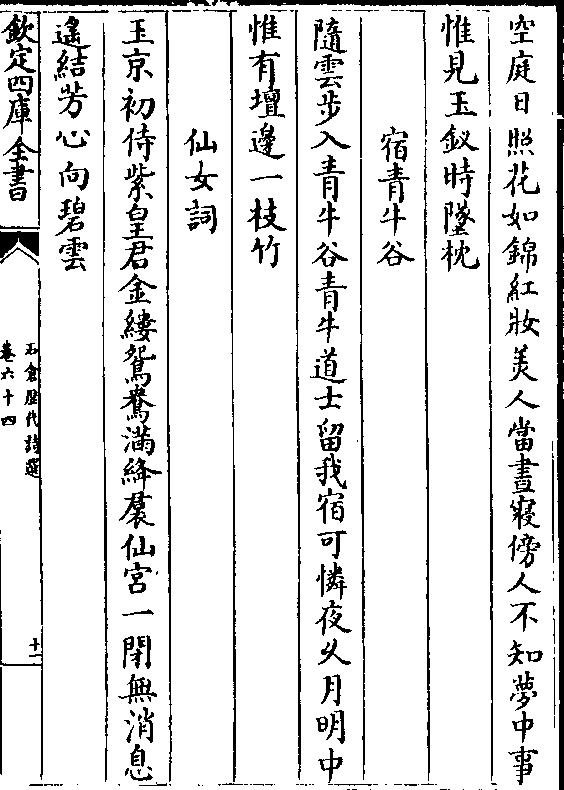 空庭日照花如錦紅妝美人當晝寢傍人不知夢中事
惟見玉釵時墜枕
宿青牛谷
隨雲步入青牛谷青牛道士留我宿可憐夜久月明中
惟有壇邊一枝竹
仙女詞
玉京初侍紫皇君金縷鴛鴦滿絳裠仙宮一閉無消息
遙結芳心向碧雲
欽定四庫全書
石倉歴代詩選
卷六十四
十一